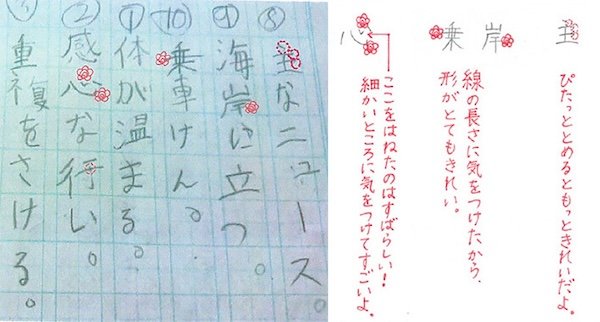 ⑧ 主なニュース。
⑨ 海岸に立つ。
⑩ 乗車けん。
① 体が温まる。
② 感心な行い。
③ 重複をさける。
主
ぴたっととめるともっときれいだよ。
岸
乗
線の長さに気をつけたから、
形がとてもきれい。
心
ここをはねたのはすばらしい！
細かいところに気をつけてすごいよ。